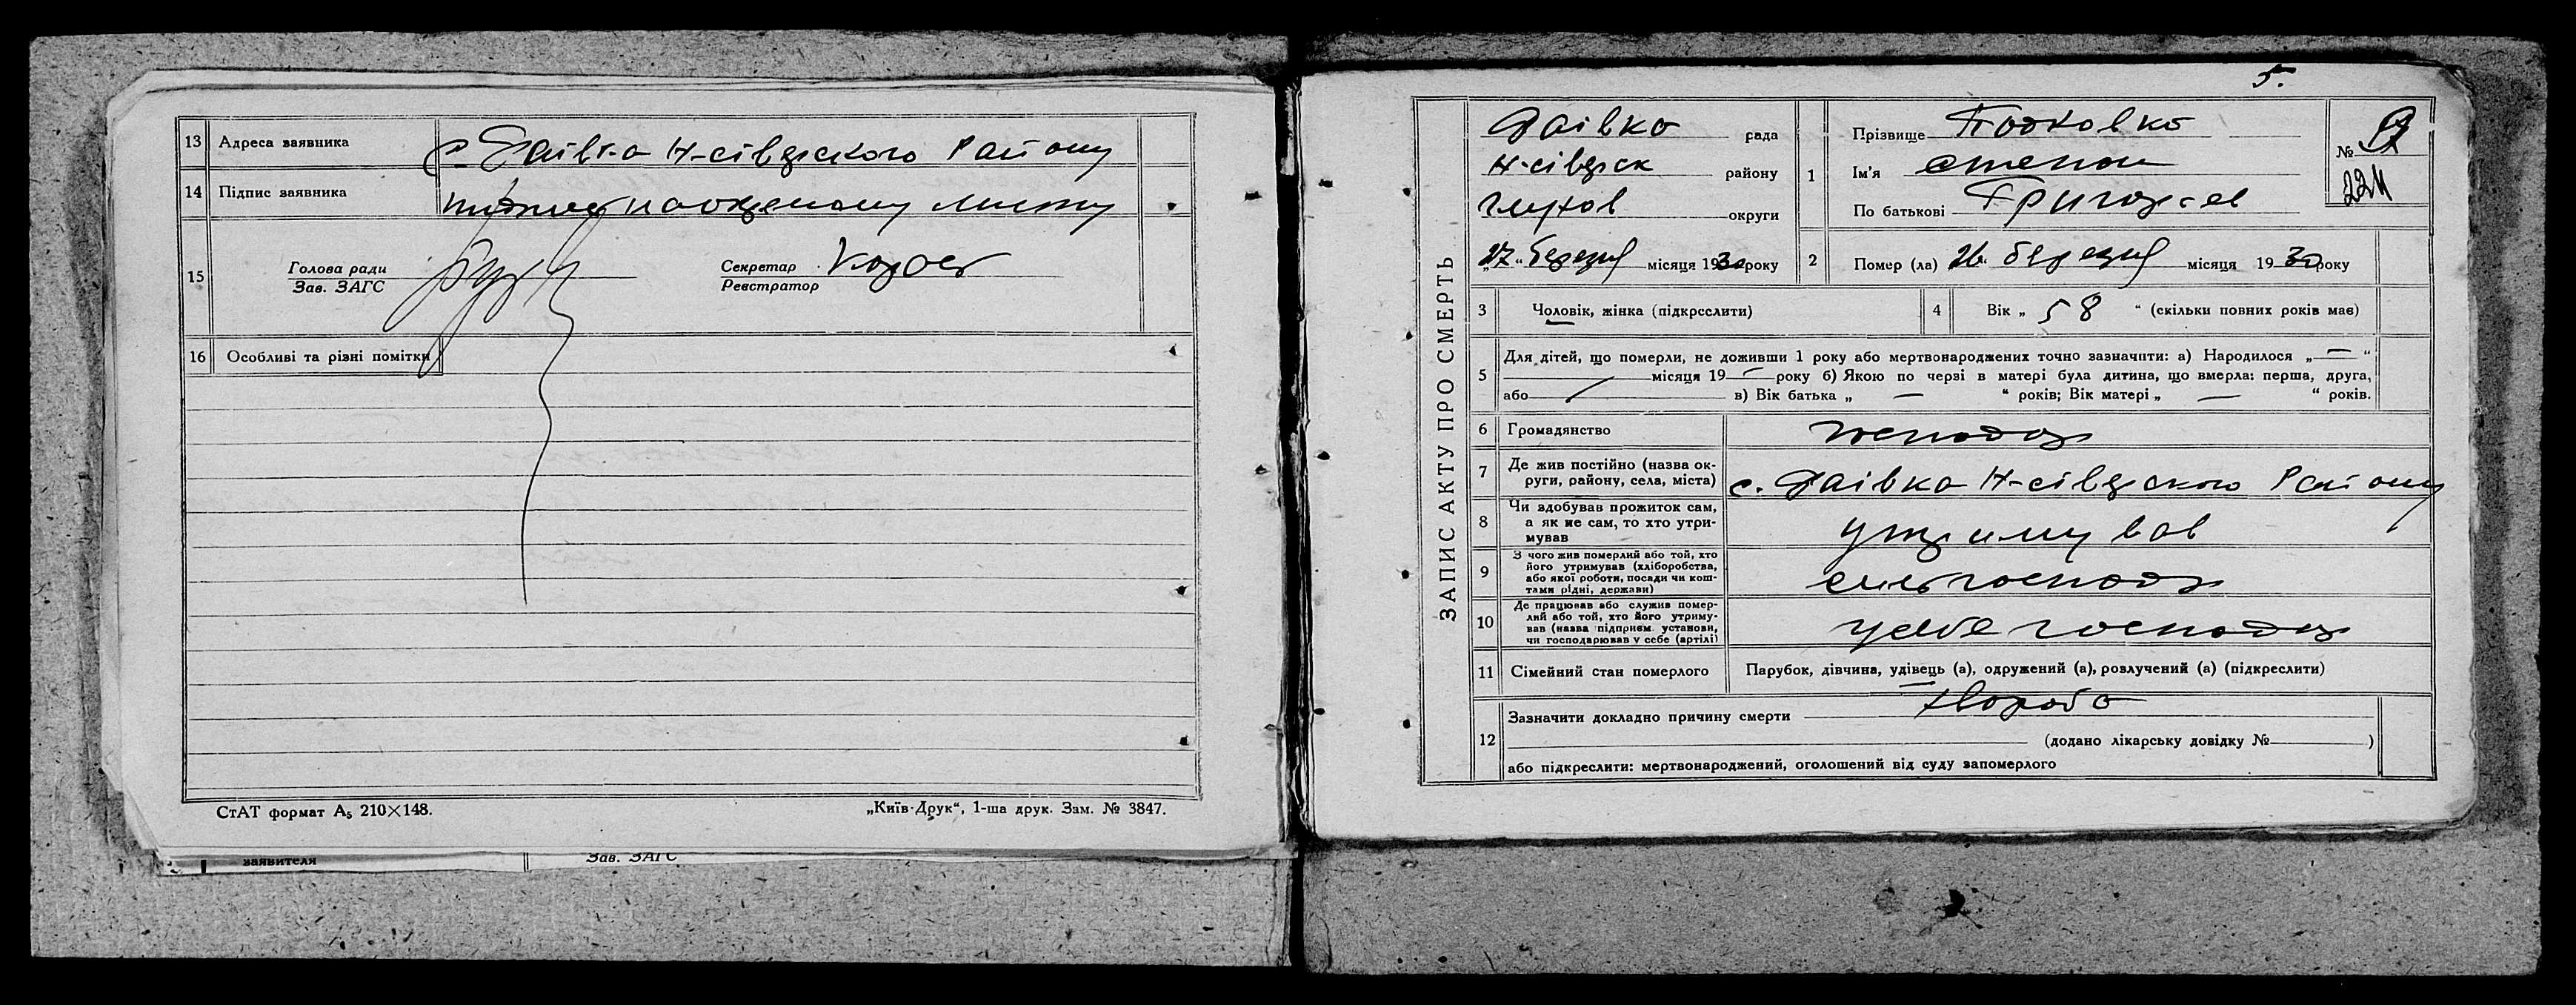 13 Адреса заявника с. Гаївка Н-сіверского Району
14 Підпис заявника
15 Голова ради
Зав. ЗАГС
Секретар
Реєстратор
16 Особливі та різні помітки
СтАТ формат А₅ 210×148.
„Київ-Друк“, 1-ша друк. Зам. № 3847.
заявителя
Зав. ЗАГС
5.
ЗАПИС АКТУ ПРО СМЕРТЬ
рада
Н-сіверск району
Глухов округи
„27“ березня місяця 1930 року
1 Прізвище Подковко
Ім'я Степан
По батькові Григор-ев
№
224
2 Помер (ла) 26 березня місяця 1930 року
3 Чоловік, жінка (підкреслити)
4 Вік „ 58 “ (скільки повних років має)
5 Для дітей, що померли, не доживши 1 року або мертвонароджених точно зазначити: а) Народилося „ — “
місяця 19 — року б) Якою по черзі в матері була дитина, що вмерла: перша, друга,
або — в) Вік батька „ — “ років; Вік матері „ — “ років.
6 Громадянство господар
7 Де жив постійно (назва ок-
руги, району, села, міста)
Н-сіверского Району
8 Чи здобував прожиток сам,
а як не сам, то хто утри-
мував
утримував
9 З чого жив померлий або той, хто
його утримував (хліборобства,
або якої роботи, посади чи кош-
тами рідні, держави)
сельгосподар
10 Де працював або служив помер-
лий або той, хто його утриму-
вав (назва підприєм. установи,
чи господарював у себе (артілі)
у себе господар
11 Сімейний стан померлого Парубок, дівчина, удівець (а), одружений (а), розлучений (а) (підкреслити)
12 Зазначити докладно причину смерти хвороба
(додано лікарську довідку № )
або підкреслити: мертвонароджений, оголошений від суду запомерлого